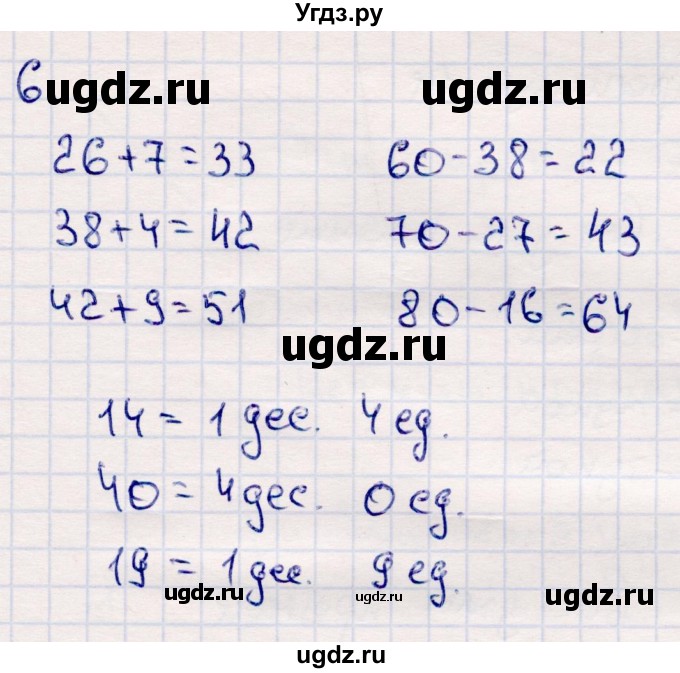 Угдз.ру
6 ugdz.ru ugdz.ru
26+7=33 60-38=22
38+4=42 70-27=43
42+9=51 80-16=64
ugdz.ru
14 = 1 дес. 4 ед.
40 = 4 дес. 0 ед.
19 = 1 дес. 9 ед.
ugdz.ru ugdz.ru ugdz.ru
ugdz.ru